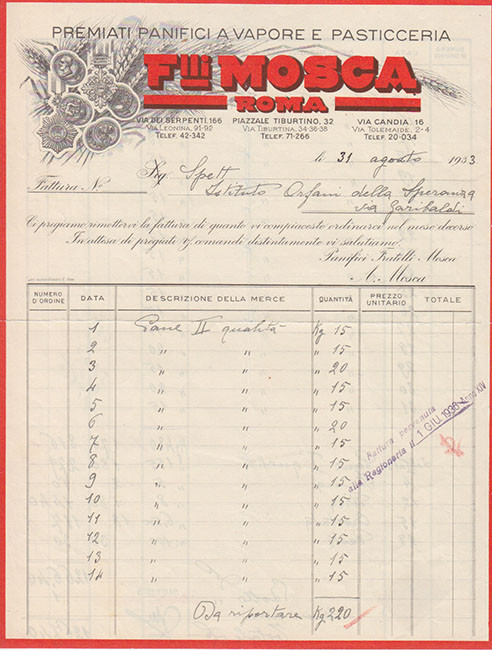 PREMIATI PANIFICI A VAPORE E PASTICCERIA
Flli MOSCA
ROMA
VIA DEI SERPENTI, 166 PIAZZALE TIBURTINO, 32 VIA CANDIA 16
VIA LEONINA, 91-92 VIA TIBURTINA, 34-36-38 VIA TOLEMAIDE, 2-4
TELEF. 42-342 TELEF. 71-266 TELEF. 20-034
li 31 agosto 1933
Fattura No Reg. Spett
Istituto Orfani della Speranza
via Garibaldi
Ci pregiamo rimettervi la fattura di quanto vi compiaceste ordinarci nel mese decorso
In attesa di pregiate Vs/ comandi distintamente vi salutiamo.
Panifici Fratelli Mosca
A. Mosca
NUMERO D'ORDINE DATA DESCRIZIONE DELLA MERCE QUANTITÀ PREZZO UNITARIO TOTALE
1 Pane II qualità Kg 15
2 " " " 15
3 " " " 20
4 " " " 15
5 " " " 15
6 " " " 20
7 " " " 15
8 " " " 15
9 " " " 15
10 " " " 15
11 " " " 15
12 " " " 15
13 " " " 15
14 " " " 15
Da riportare Kg 220
Fattura pervenuta
alla Ragioneria il 1 GIU. 1936 Anno XIV